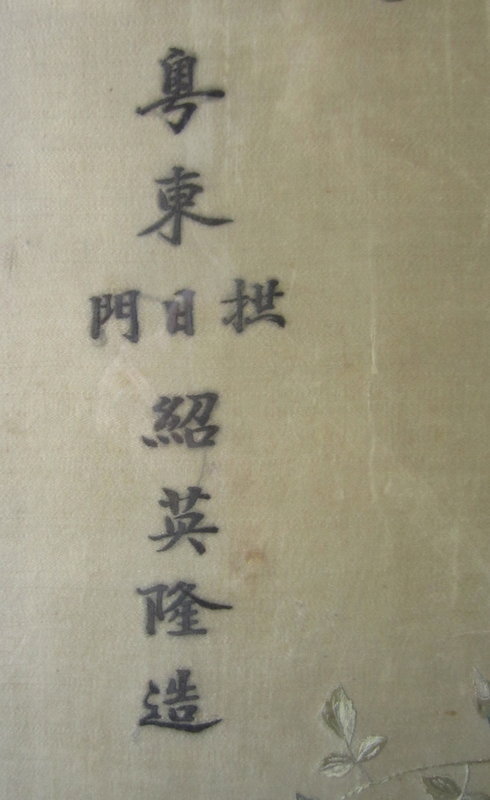 粵東
拱日門
紹英隆造